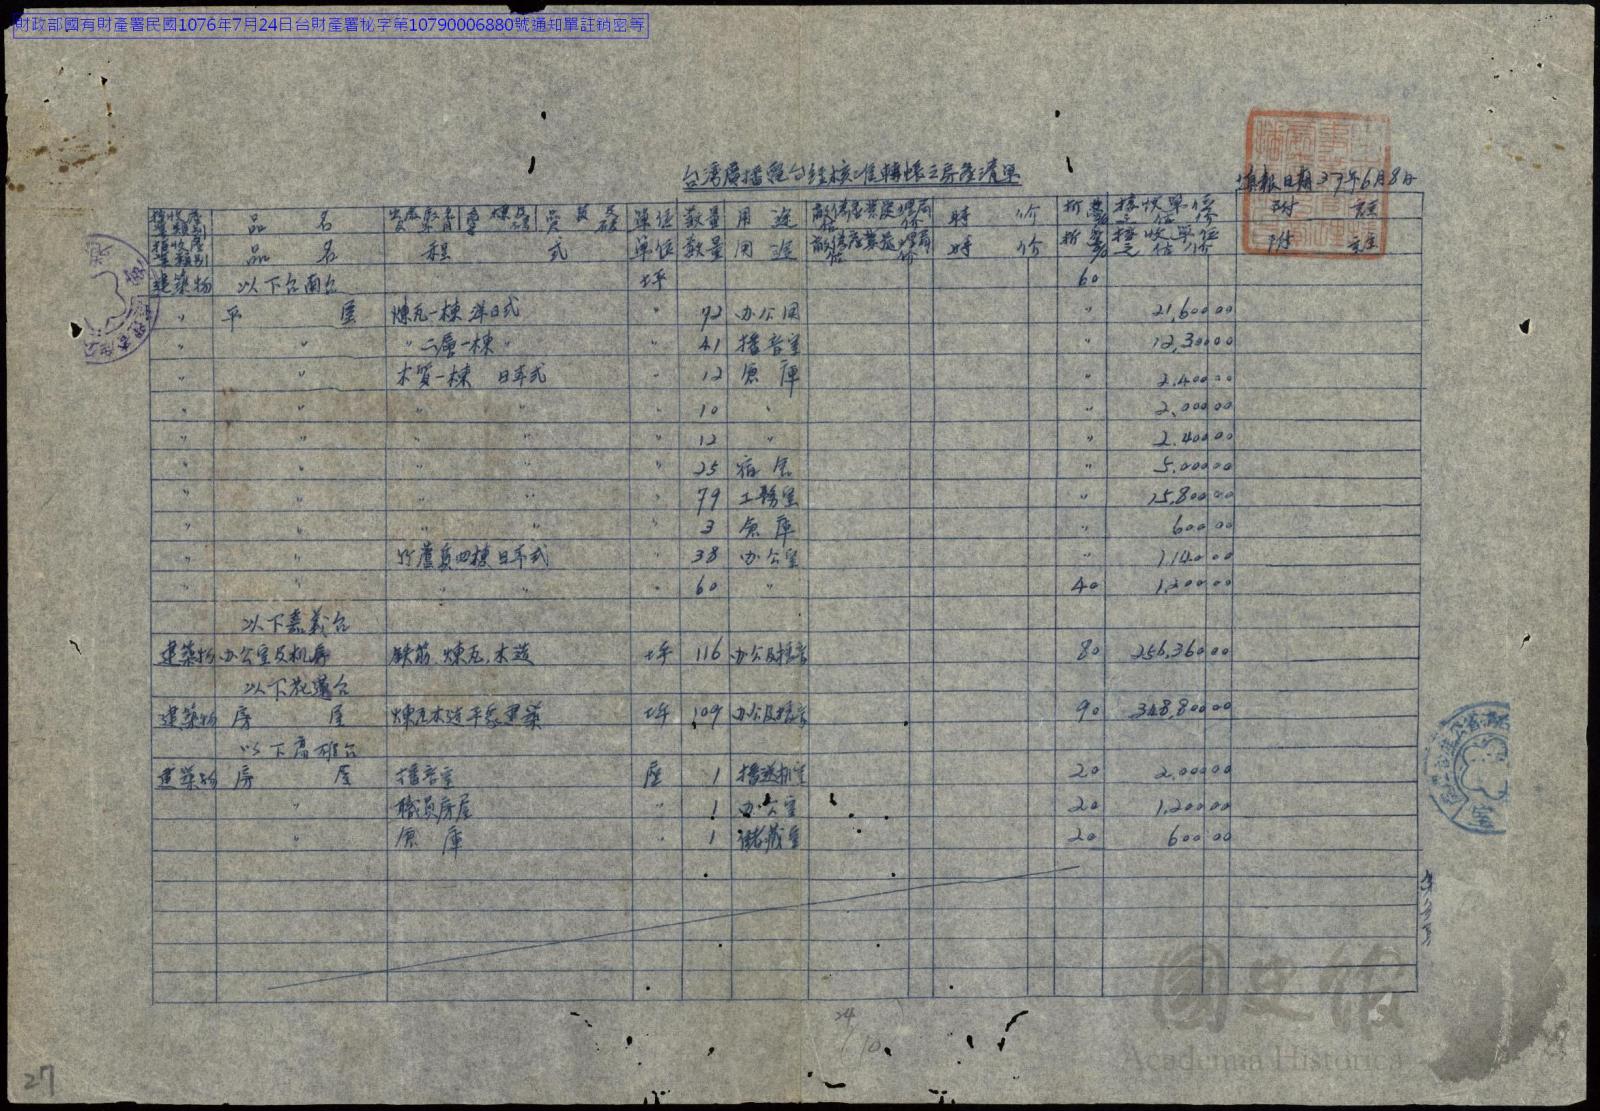 財政部國有財產署民國1076年7月24日台財產署秘字第10790006880號通知單註銷密等
台灣廣播電台經核准轉帳之房產清單
填報日期37年6月8日
品 名 單位 數量 用途 時 价 附 註
品 名 程 式 單位 數量 用途 時 价 附 註
建築物 以下台南台 坪 60
〃 平 屋 煉瓦一棟 洋日式 〃 72 办公用 〃 21,600 00
〃 〃 〃 二層一棟 〃 〃 41 播音室 〃 12,300 00
〃 〃 木質一棟 日本式 〃 12 倉庫 〃 2,400 00
〃 〃 〃 〃 〃 10 〃 〃 2,000 00
〃 〃 〃 〃 〃 12 〃 〃 2,400 00
〃 〃 〃 〃 〃 25 宿舍 〃 5,000 00
〃 〃 〃 〃 〃 79 工務室 〃 15,800 00
〃 〃 〃 〃 〃 3 倉庫 〃 600 00
〃 〃 日本式 〃 38 办公室 〃 1,140 00
〃 〃 〃 〃 〃 60 〃 40 1,200 00
以下嘉義台
建築物 办公室及机房 鉄筋 煉瓦、木造 坪 116 办公及播音 80 256,360 00
以下花蓮台
建築物 房 屋 煉瓦木造平房建築 坪 109 办公及播音 90 348,800 00
以下高雄台
建築物 房 屋 播音室 座 1 播送机室 20 2,000 00
〃 職員房屋 〃 1 办公室 20 1,200 00
〃 倉庫 〃 1 儲藏室 20 600 00
國史館
Academia Historica
24
10
27